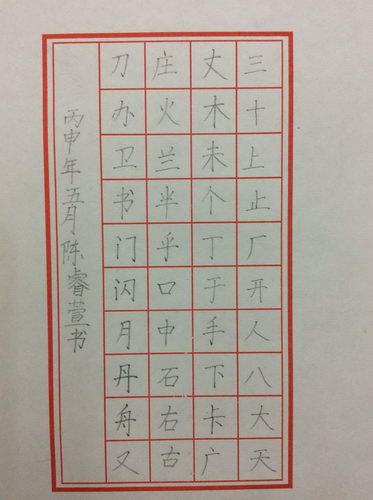 三十上止厂开人八大天
丈木未个丁于手下卡广
庄火兰半乎口中石右古
刀办卫书门闪月丹舟又
丙申年五月陈睿萱书